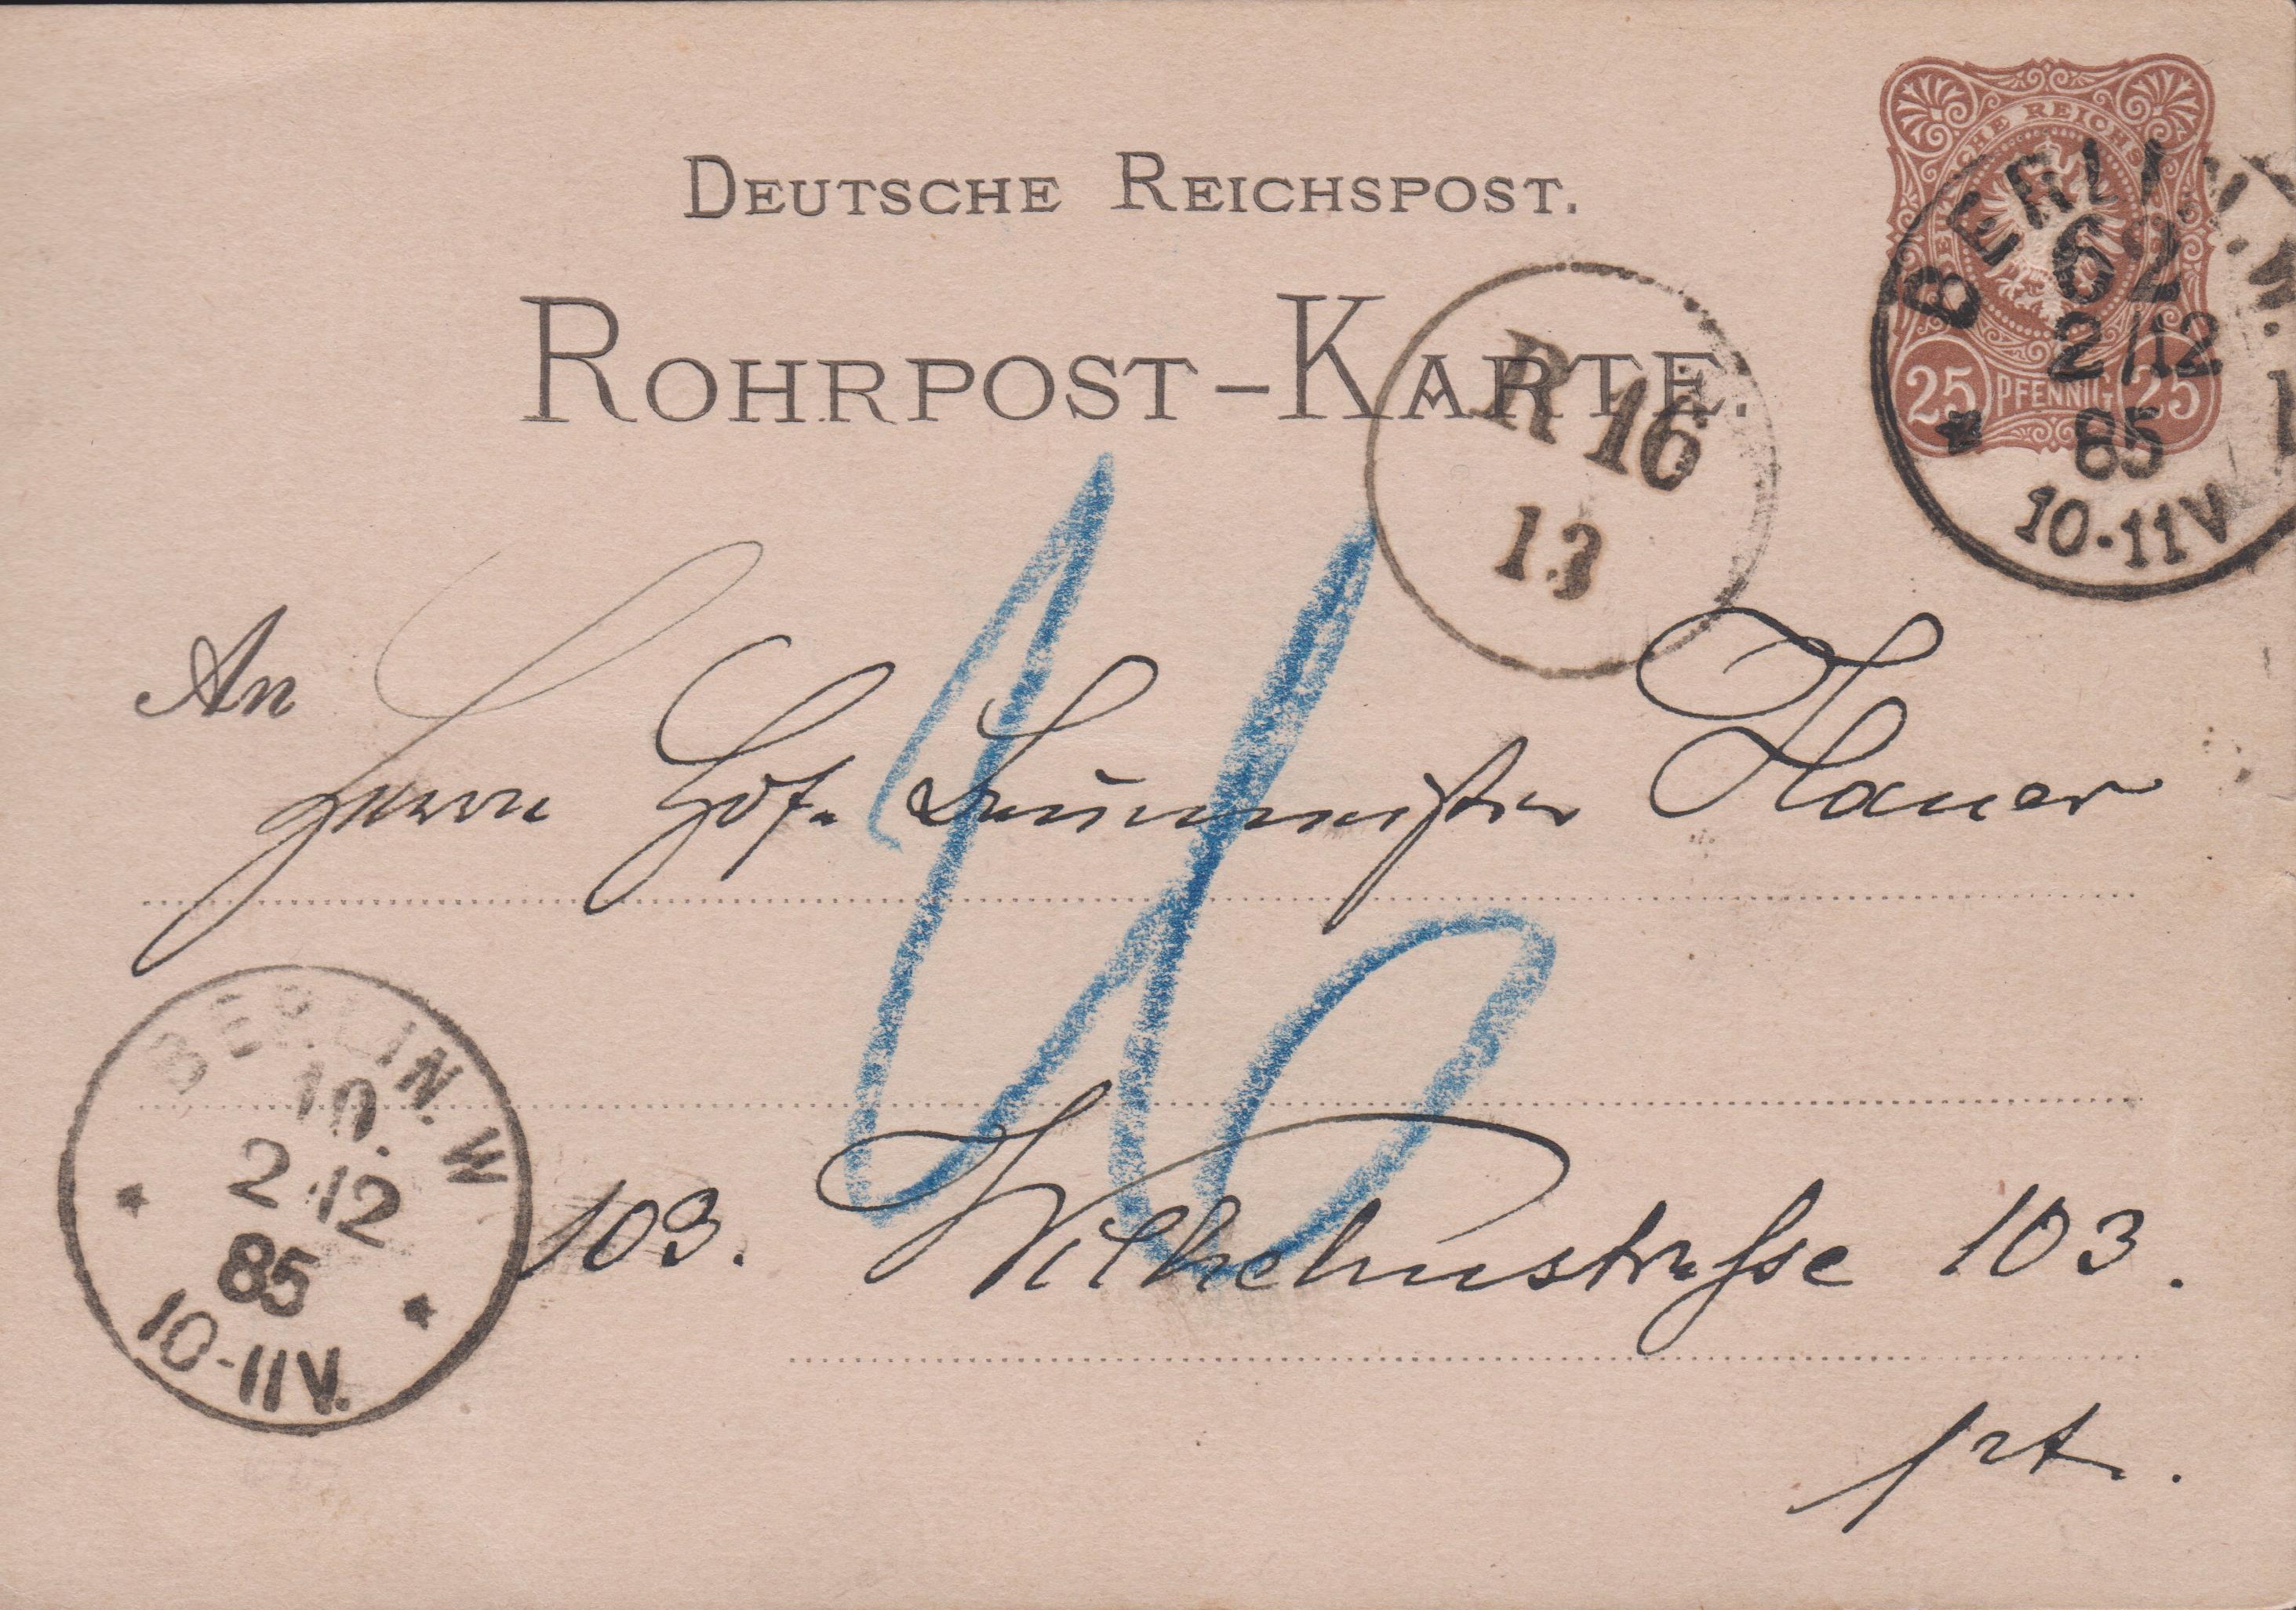 DEUTSCHE REICHSPOST.
DEUTSCHE REICHSPOST
25 PFENNIG 25
BERLIN. W.
62
2/12
85
10-11V
ROHRPOST-KARTE.
R 16
13
An
Herrn Hof-Baumeister Hauer
BERLIN. W
10.
2 12
85
10-11V.
103. Wilhelmstraße 103.
prt.